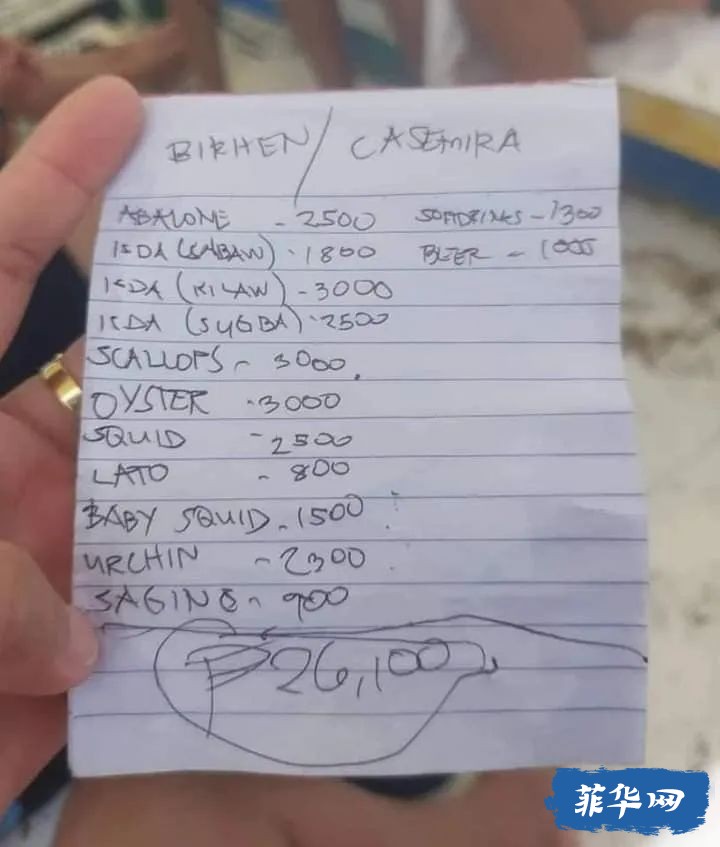 BIRHEN / CASEMIRA
ABALONE - 2500
ISDA (SABAW) - 1800
ISDA (KILAW) - 3000
ISDA (SUGBA) - 2500
SCALLOPS - 3000.
OYSTER - 3000
SQUID - 2500
LATO - 800
BABY SQUID - 1500
URCHIN - 2300
SAGING - 900
SOFTDRINKS - 1300
BEER - 1000
₱26,100
菲华网